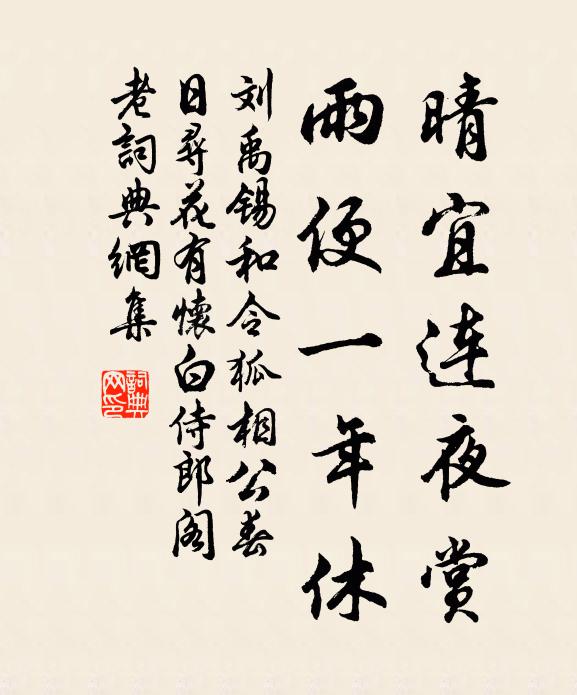 晴宜连夜赏
雨便一年休
刘禹锡和令狐相公春
日寻花有怀白侍郎阁
老词典网集
詞典
网印